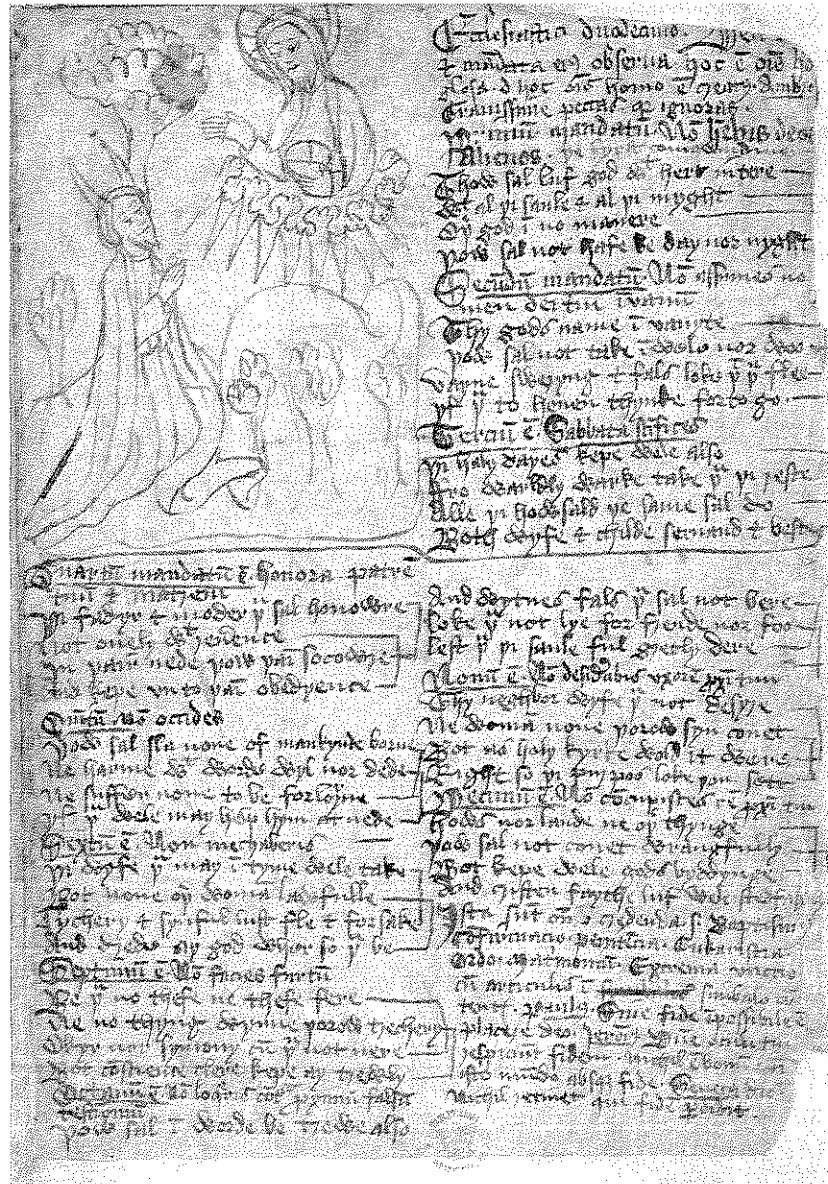 Ecclesiastici duodecimo.
& mandata ei9 observa hoc ē oīs ho
glosa. ad hoc oīs homo ē
Gravissime peccas si ignoras.
Primū mandatū. Nō hēbis deos
Alienos.
Thow sal luf god wt hert intere
Wt al þi saule & al þi myght
Oþ god ī no manere
Þow sal not hafe be day nor nyght
Secūdū mandatū. Nō assumes no
men dei tui ī vanū
Thy gods name ī vanyte
Þow sal not take ī wele nor wo
Vayne sweryng & fals loke þt þu fle
yf þu to heven thynke for to go
Terciū ē. Sabbata sc̄ifices
Þi haly dayes kepe wele also
Fro warldly warke take þu þi reste
Alle þi howsald þe same sal do
Both wyfe & childe servand & beste
Quartū mandatū ē. honora patrē
tuū & matrem
Þi fadyr & moder þu sal honowre
Not only wt reverence
In þair nede þow þaī socowre
And kepe vnto þaī obedyence
Quintū Nō occides
Þow sal sla none of mankynde borne
Ne harme wt worde wyl nor dede
Ne suffer none to be forlorne
yf þu wele may help hym at nede
Sextū ē. Non mechaberis
Þi wyfe þu may ī tyme wele take
Bot none oþ womā lawfulle
Lychery & synful lust fle & forsake
And drede ay god wher so þu be
Septimū ē. Nō facies furtū
Be þu no thefe ne thefe fere
Ne no thyng wynne þorow trechery
Okyr nor symony cū þu not nere
Bot cōscience clere kepe ay trewly
Octavū ē. Nō loqueris falsū
testimoniū
Þow sal ī worde be trewe also
And wytnes fals þu sal not bere
Loke þu not lye for frende nor foo
Lest þu þi saule ful gretly dere
Nonū ē. Nō desiderabis vxorē pxī tui
Thy neghbor wyfe þu not desyre
Ne womā none þorow syn covet
Bot as haly kyrke wold it were
Right so þi purpos loke þou sett
Decimū ē. Nō cōcupisces rē pxī tui
Hows nor lande ne oþ thynge
Þow sal not covet wrangfully
Bot kepe wele gods byddynge
And cristen faythe luf
Ista sūt credenda. s. Baptismus
Cōfirmacio. penitēcia. Eukaristia
Ordo. Matrimoniū. Extrema vnccio
cū articulis ī simbalo
Paulus. Sine fide īpossibile ē
placere deo.
respiciūt fidem.
isto mūdo absque fide.
Nichil retinet qui fidē perdidit.